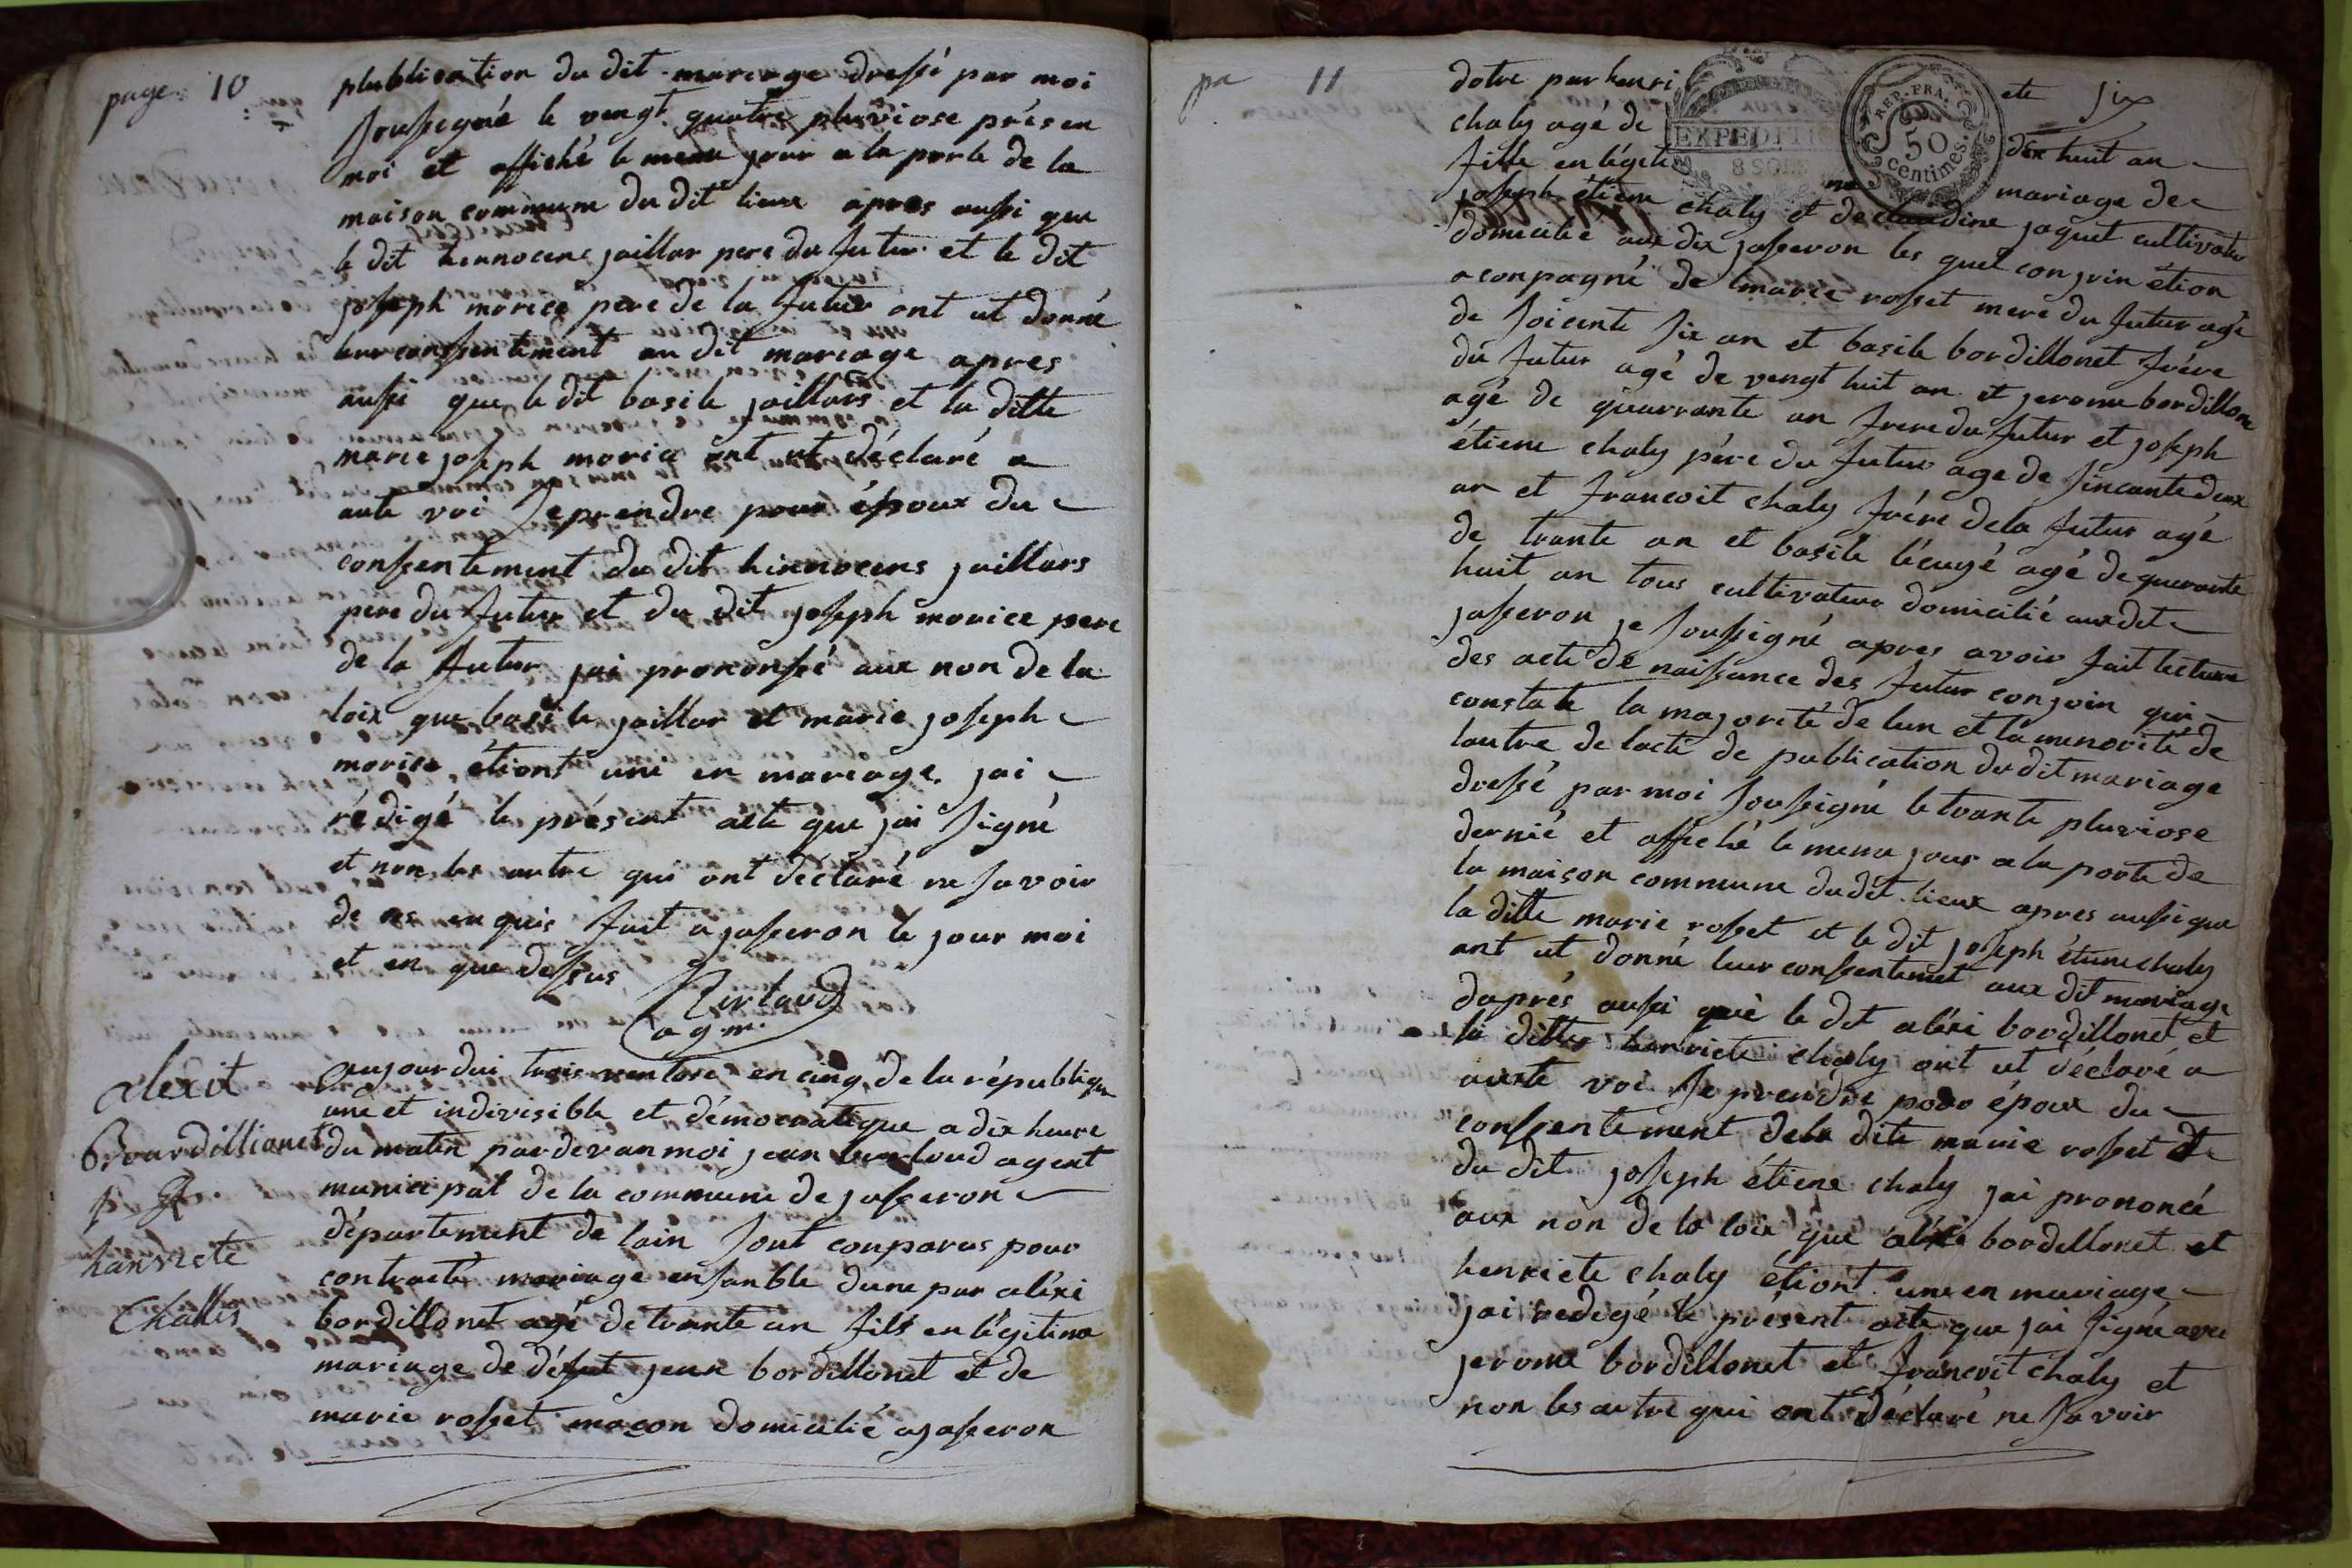 page 10
plublication du dit mariage dressé par moi
soussigné le vengt quatre pluviose présen
moi et affiché le meme jour a la porte de la
maison commune du dit lieux apres aussi que
le dit hennocens jaillar pere du futur et le dit
joseph morice pere de la futur ont ut donné
leur conssentement au dit mariage apres
aussi que le dit basile jaillars et la ditte
marie joseph morice ont ut déclaré a
aute voi se prendre pour époux du
consentement du dit hinnocens jaillars
pere du futur et du dit joseph morice pere
de la futur jai prononssé aux non de la
loix que basile jaillar et marie joseph
morice étiont uni en mariage. jai
rédigé le présent acte que jai signé
et non les autre qui ont déclaré ne savoir
de ces enquis fait a jasseron le jour moi
et en que dessus
agm.
alexit
Bourdillionet
&
hanriete
Challis
aujourdui trois ventose en cinq de la république
une et indivisible et démocratique a dix heure
du matin par devan moi jean berloud agent
municipal de la commune de jasseron
département de lain sont conparus pour
contracté mariage ensanble dune par aléxi
bordillonet agé de trante an fils en légitime
mariage de défut jean bordillonet et de
marie rosset maçon domicilié a jasseron
pa 11
dotre par henri ete six
chaly agé de dix huit an
fille en légiti me mariage de
joseph étiene chaly et de claudine jaquet cultivateur
domicilié aux dix jasseron les quel conjoin étion
aconpagné de marie rosset mere du futur agé
de soicente six an et basile bordillonet frére
du futur agé de vengt huit an et jerome bordillone
agé de quarrante an frere du futur et joseph
étiene chaly pére du futur age de sincante deux
an et francoit chaly frére de la futur agé
de trante an et basile lécuyé agé de quarante
huit an tous cultivateur domicilié aux dit
jasseron je soussigné apres avoir fait lecture
des acte de naissance des futur conjoin qui
constate la majorité de lun et la minorité de
lautre de lacte de publication du dit mariage
dressé par moi soussigné le trante pluviose
dernié et affiché le meme jour a la porte de
la maison commune du dit lieux apres aussi que
la ditte marie rosset et le dit joseph étiene chaly
ont ut donné leur consentemet aux dit mariage
daprés aussi que le dit aléxi bordillonet et
la ditte henriete chaly ont ut déclaré a
aute voi se prendre pour époux du
consentement de la dite marie rosset et
du dit joseph étiene chaly jai prononcé
aux nòn de la loix que aléxi bordillonet et
henriete chaly étiont uni en mariage
jai redigé le présent acte que jai signé avec
jerome bordillonet et francoit chaly et
non les autre qui ont déclaré ne savoir
EXPEDITI
REP. FRA.
50
centimes